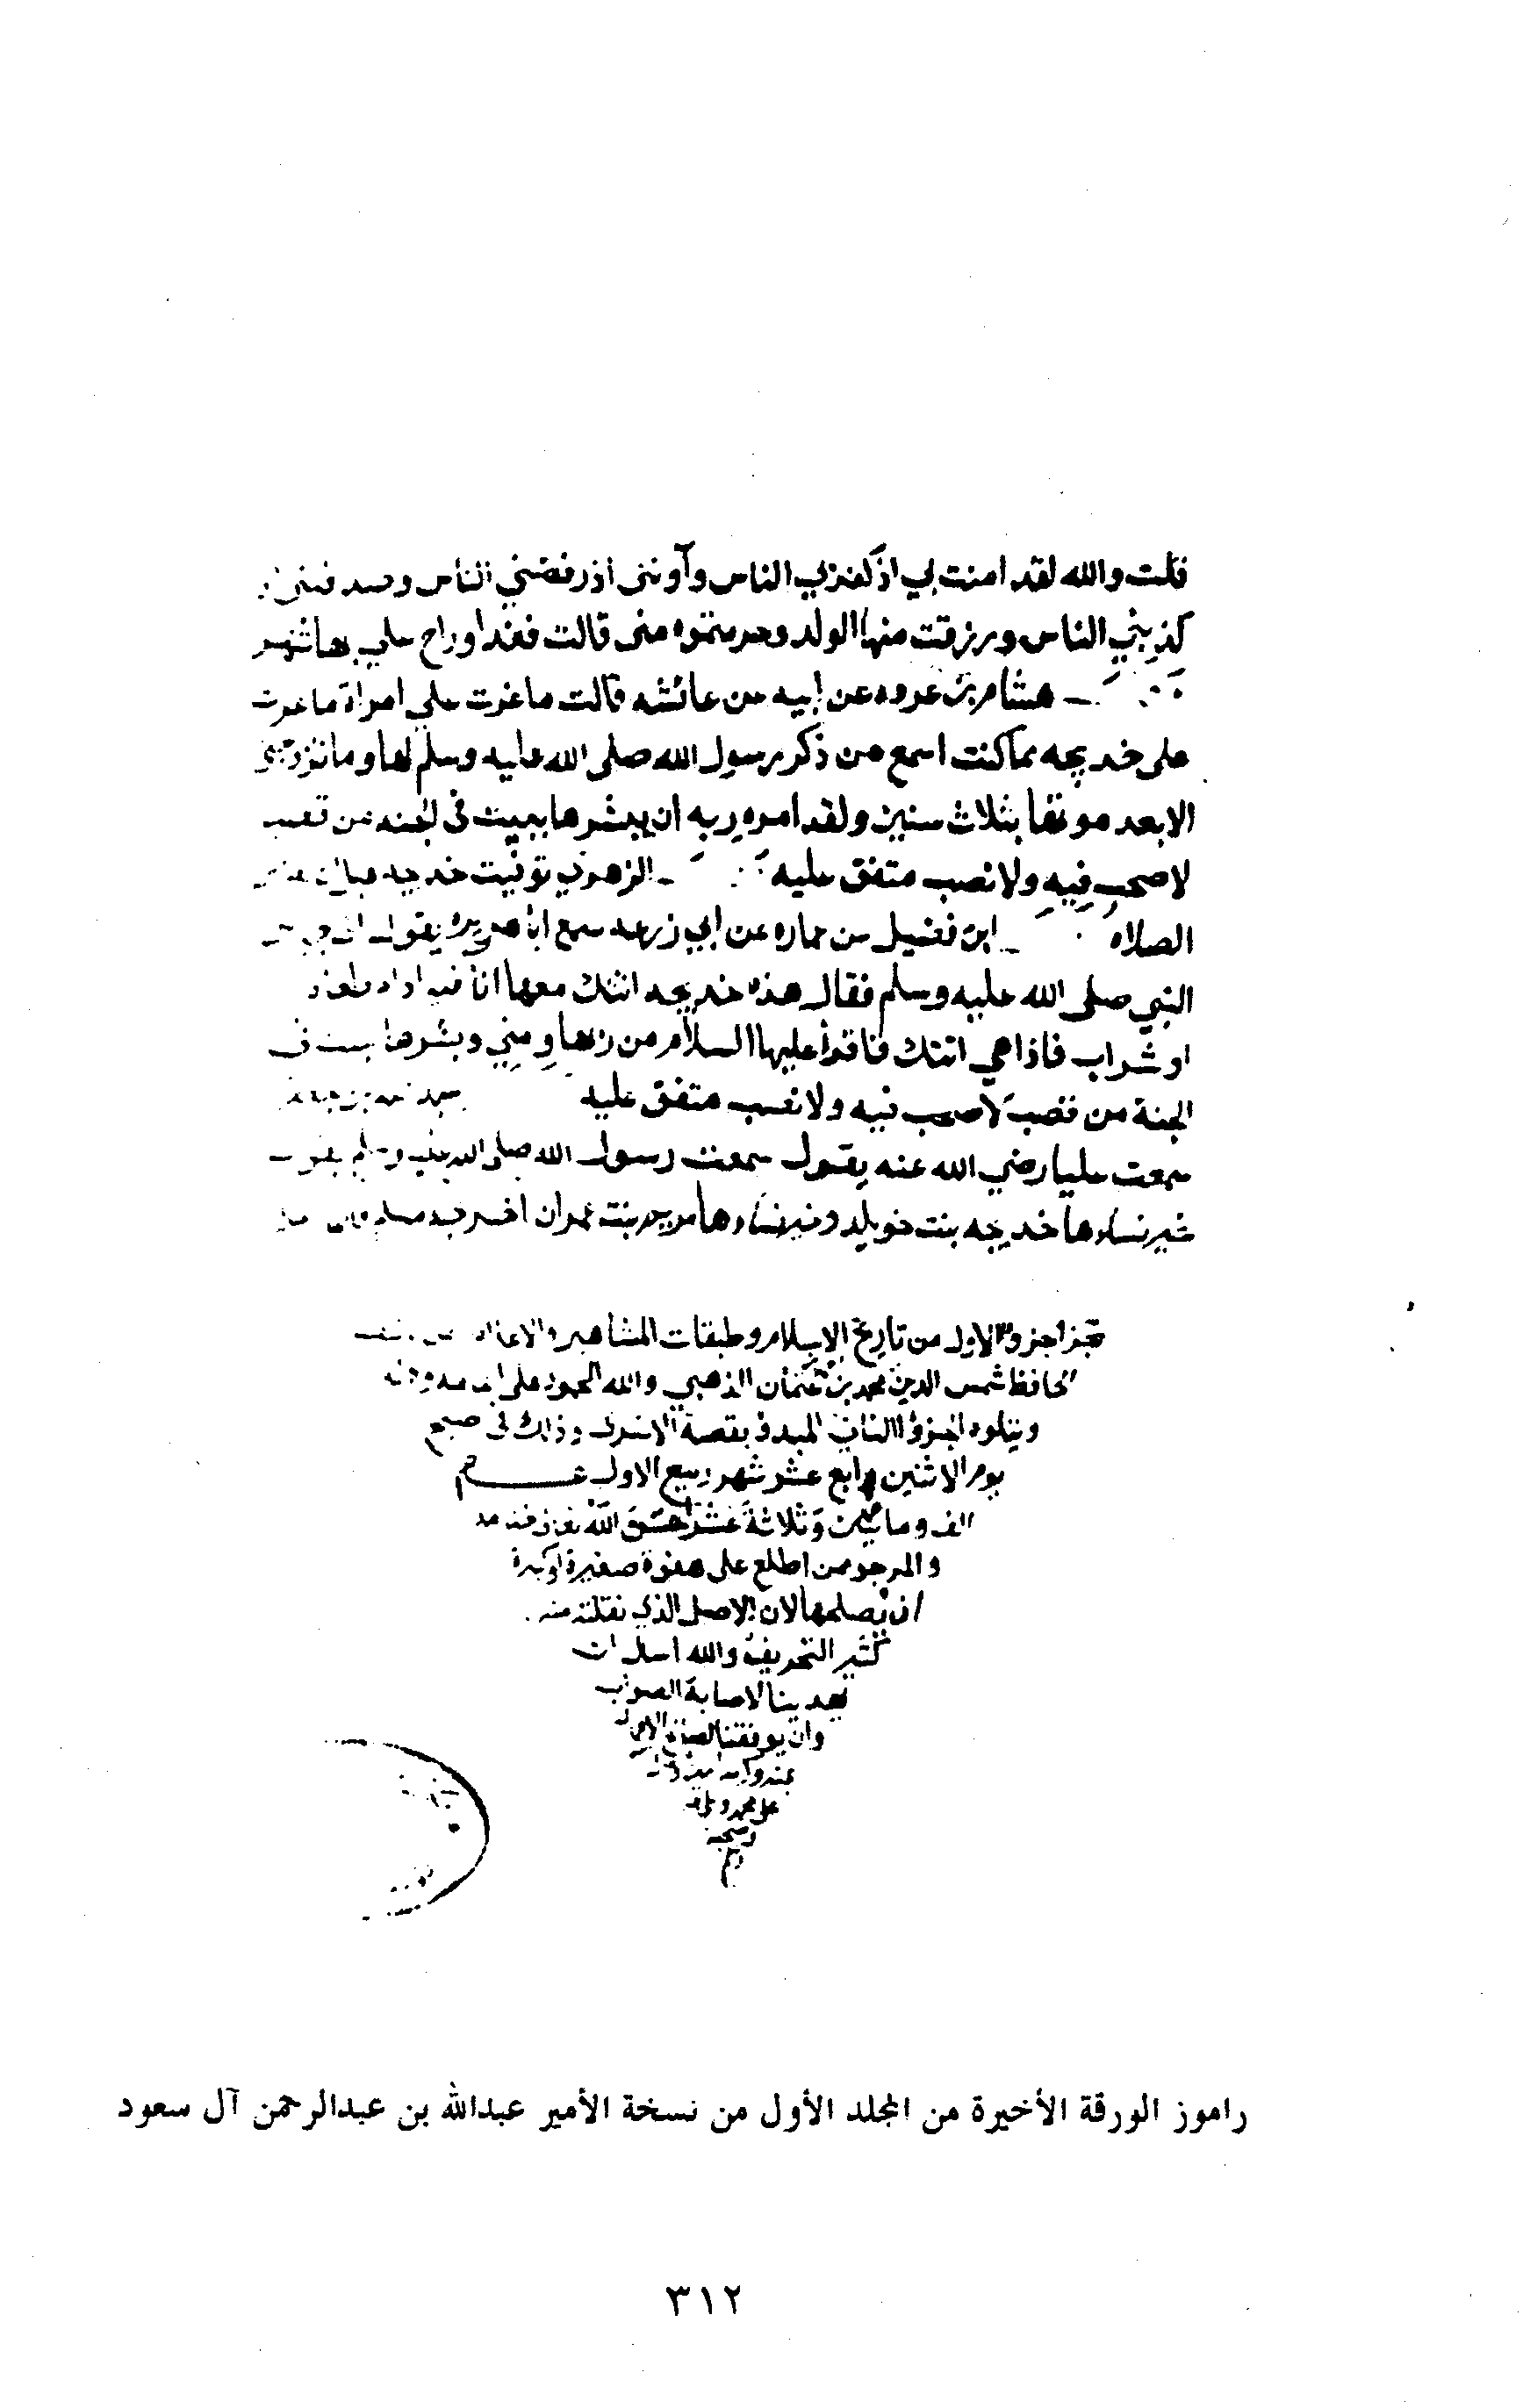 قلت والله لقد امنت بي اذ كفر بي الناس وآوتني اذ رفضني الناس وصدقتني
كذبني الناس ورزقت منها الولد وحرمتموه مني قالت فغدا وراح علي بها شهر
هشام بن عروه عن ابيه عن عائشه قالت ما غرت علي امراة ما غرت
على خديجه مما كنت اسمع من ذكر رسول الله صلى الله عليه وسلم لها وما تزوجني
الا بعد موتها بثلاث سنين ولقد امره ربه ان يبشرها ببيت في الجنه من قصب
لا صخب فيه ولا نصب متفق عليه الزهري توفيت خديجه قبل ان
الصلاه ابن فضيل عن عماره عن ابي زرعه سمع ابا هريره يقول
النبي صلى الله عليه وسلم فقال هذه خديجه اتتك معها انا فيه ادام طعام
او شراب فاذا هي اتتك فاقرأ عليها السلام من ربها ومني وبشرها ببيت في
الجنة من قصب لا صخب فيه ولا نصب متفق عليه
سمعت عليا رضي الله عنه يقول سمعت رسول الله صلى الله عليه وسلم يقول
خير نسائها خديجه بنت خويلد وخير نسائها مريم بنت عمران اخرجه مسلم
نجز الجزو الاول من تاريخ الاسلام وطبقات المشاهير والاعلام
الحافظ شمس الدين محمد بن عثمان الذهبي والله المحمود على
ويتلوه الجزؤ الثاني المبدؤ بقصة الاسرى وذلك في صبح
يوم الاثنين رابع عشر شهر ربيع الاول
الف ومائتين وثلاثة عشر
والمرجو ممن اطلع على هفوة صغيرة او كبيرة
ان يصلحها لان الاصل الذي نقلته منه
كثير التحريف والله اسال ان
يهدينا لاصابة الصواب
وان يوفقنا لصالح
بمنه وكرمه امين
على محمد وعلى
وصحبه
راموز الورقة الأخيرة من المجلد الأول من نسخة الأمير عبدالله بن عبدالرحمن آل سعود
٣١٢